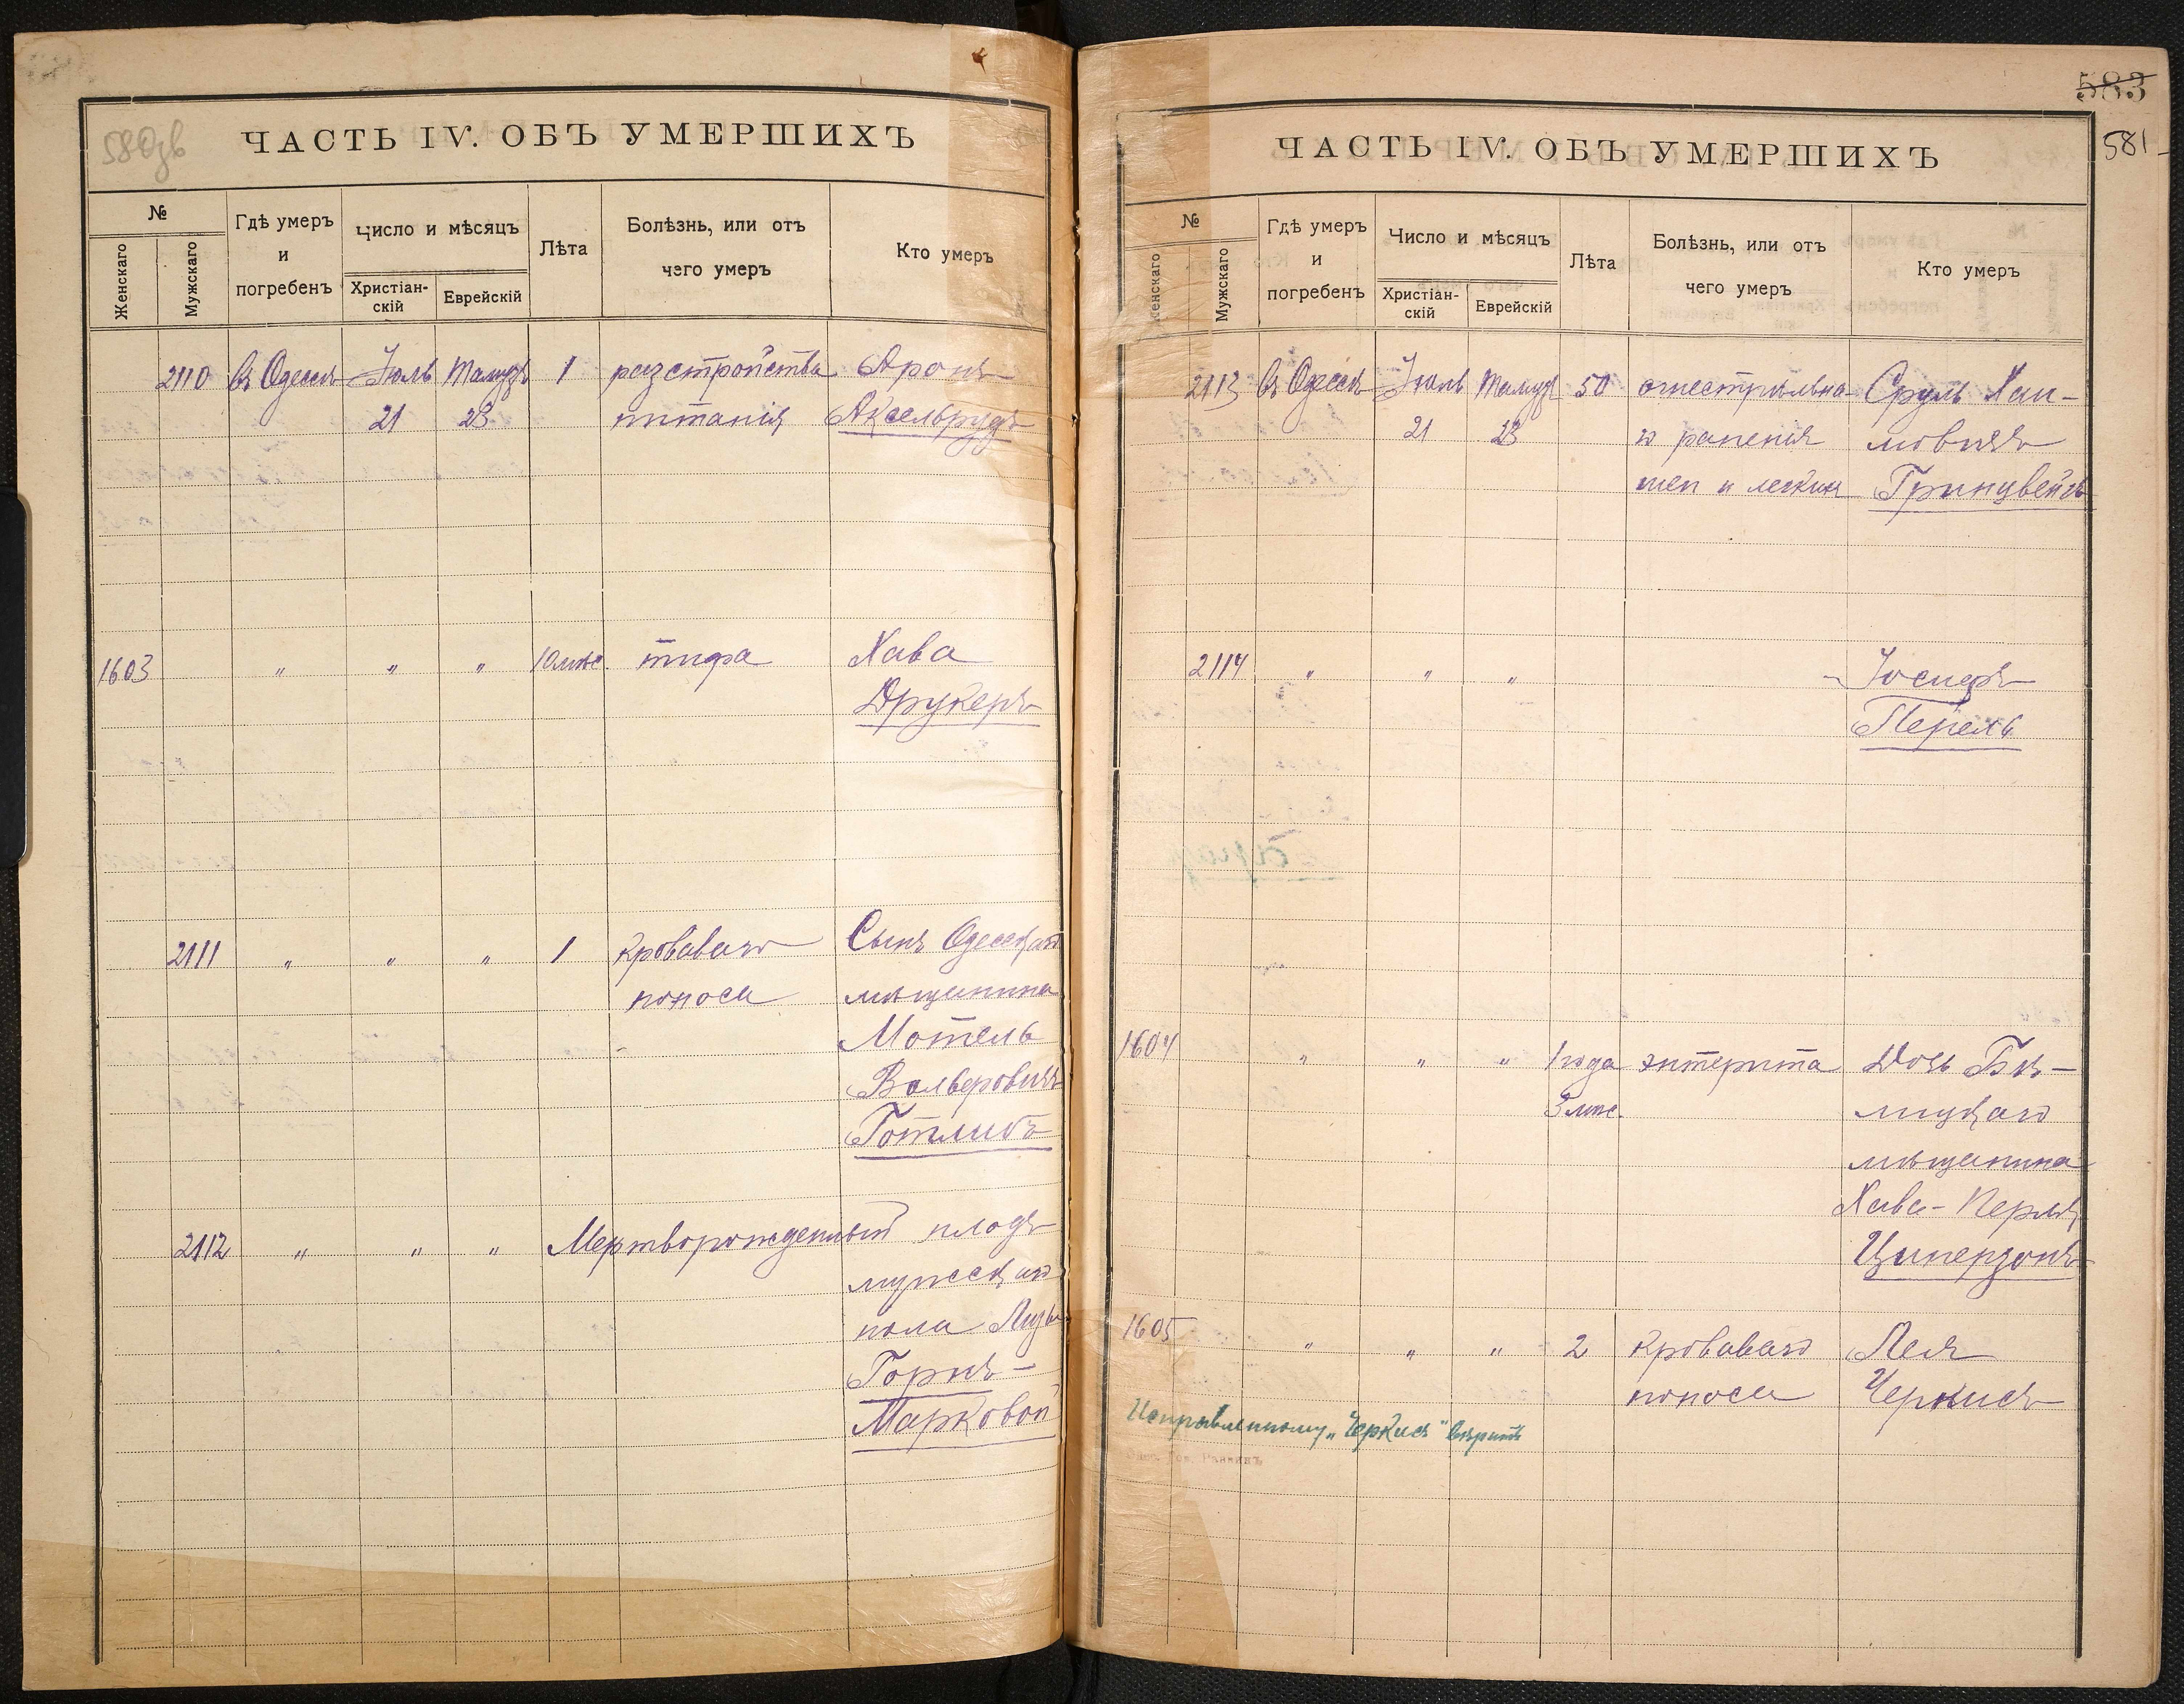 580зв
ЧАСТЬ IV. ОБЪ УМЕРШИХЪ
№
Женскаго
Мужскаго
Гдѣ умеръ
и
погребенъ
Число и мѣсяцъ
Христіан-
скій
Еврейскій
Лѣта
Болѣзнь, или отъ
чего умеръ
Кто умеръ
2110 въ Одессѣ Іюль Тамузъ 1 разстройства Аронъ
21 23 питанія Аксельрудъ
1603 " " " 10 мѣс. тифа Хава
Друкеръ
2111 " " " 1 Кроваваго Сынъ Одесскаго
поноса мѣщанина
Мотель
Вольфовичъ
Готлибъ
2112 " " " Мертворожденный плодъ
мужскаго
пола Лизы
Горнъ-
Марковой
583
581
ЧАСТЬ IV. ОБЪ УМЕРШИХЪ
№
Женскаго
Мужскаго
Гдѣ умеръ
и
погребенъ
Число и мѣсяцъ
Христіан-
скій
Еврейскій
Лѣта
Болѣзнь, или отъ
чего умеръ
Кто умеръ
2113 въ Одессѣ Іюль Тамузъ 50 огнестрѣльна- Сруль Хаи-
21 23 го раненія мовичъ
шеи и легкихъ Гринцвейгъ
2114 " " " Іосифъ
Перель
1604 " " " 1 года энтерита Дочь
3 мѣс.
мѣщанина
Хава-Перля
Циперзонъ
1605 " " " 2 Кроваваго Лея
поноса Черкисъ
Исправленному "Черкисъ" вѣрить
Раввинъ